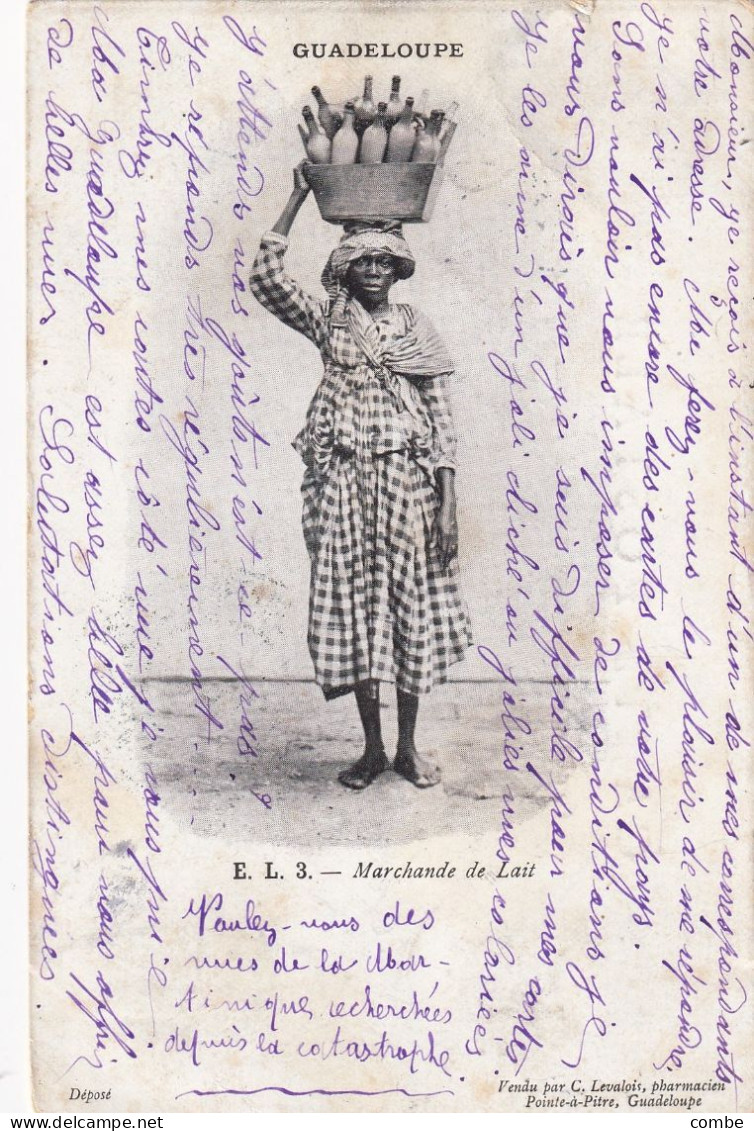 GUADELOUPE
Monsieur, je reçois à l'instant d'un de mes correspondants
votre adresse. Me ferez-vous le plaisir de me répondre,
je n'ai pas encore des cartes de votre pays.
Sans vouloir vous imposer de conditions je
vous dirais que je suis difficile pour mes cartes
Je les aime d'un joli cliché ou jolies vues coloriées.
J'attends vos goûts n'est-ce-pas. &
je réponds très régulièrement....
Timbrez mes cartes côté vue je vous prie
Ma Guadeloupe est assez belle pour vous offrir
de belles vues. Salutations distinguées.
E. L. 3. — Marchande de Lait
Voulez-vous des
vues de la Mar-
tinique recherchées
depuis la catastrophe.
Déposé
Vendu par C. Levalois, pharmacien
Pointe-à-Pitre, Guadeloupe
combe